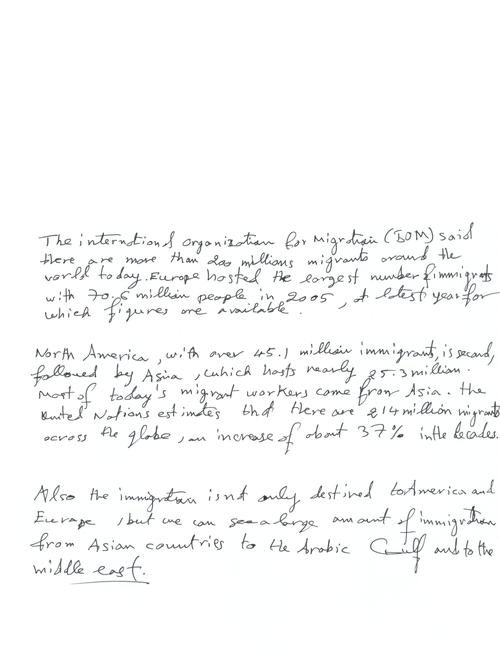 The international Organization for Migration (IOM) said
there are more than 200 millions migrants around the
world today. Europe hosted the largest number of immigrants
with 70.6 million people in 2005, at latest year for
which figures are available.
North America, with over 45.1 million immigrants, is second,
followed by Asia, which hosts nearly 25.3 million.
Most of today's migrant workers come from Asia. the
United Nations estimates that there are 214 million migrants
across the globe, an increase of about 37% in the decades.
Also the immigration isnt only destined to America and
Europe, but we can see a large amount of immigration
from Asian countries to the Arabic Gulf and to the
middle east.